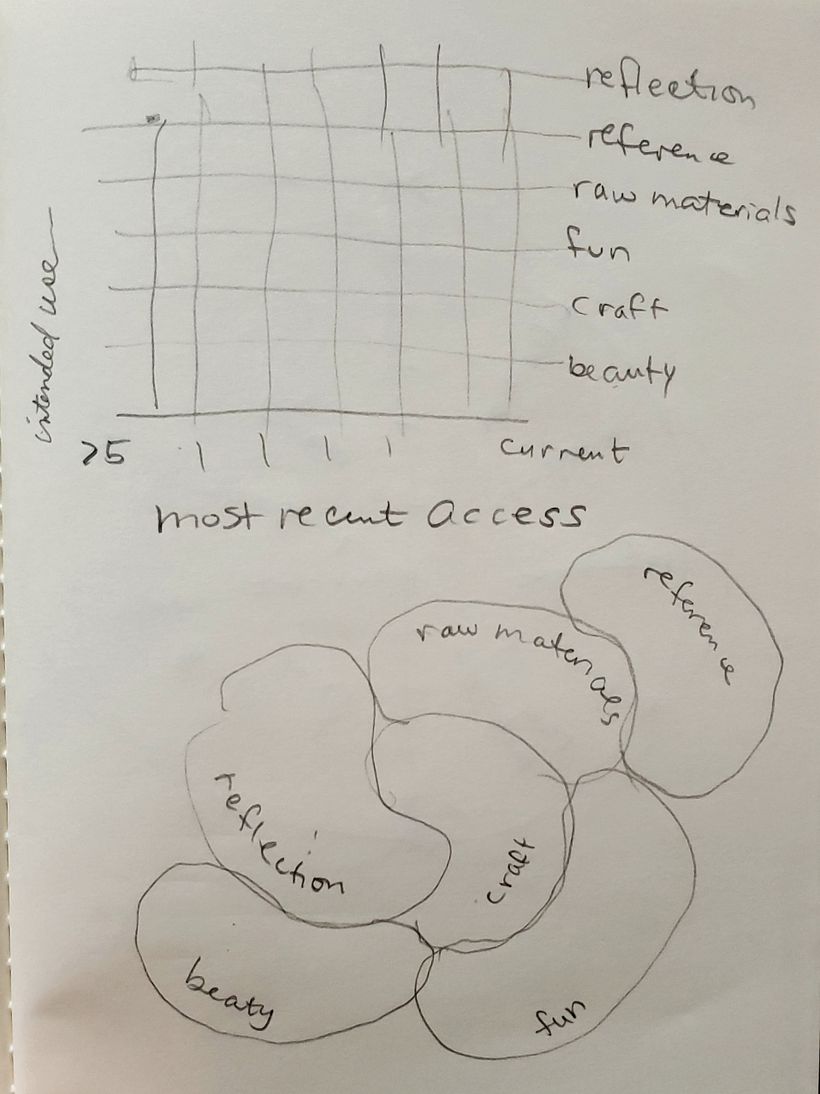 reflection
reference
raw materials
fun
craft
beauty
intended use
>5 | | | | current
most recent access
reference
raw materials
reflection
craft
beaty
fun